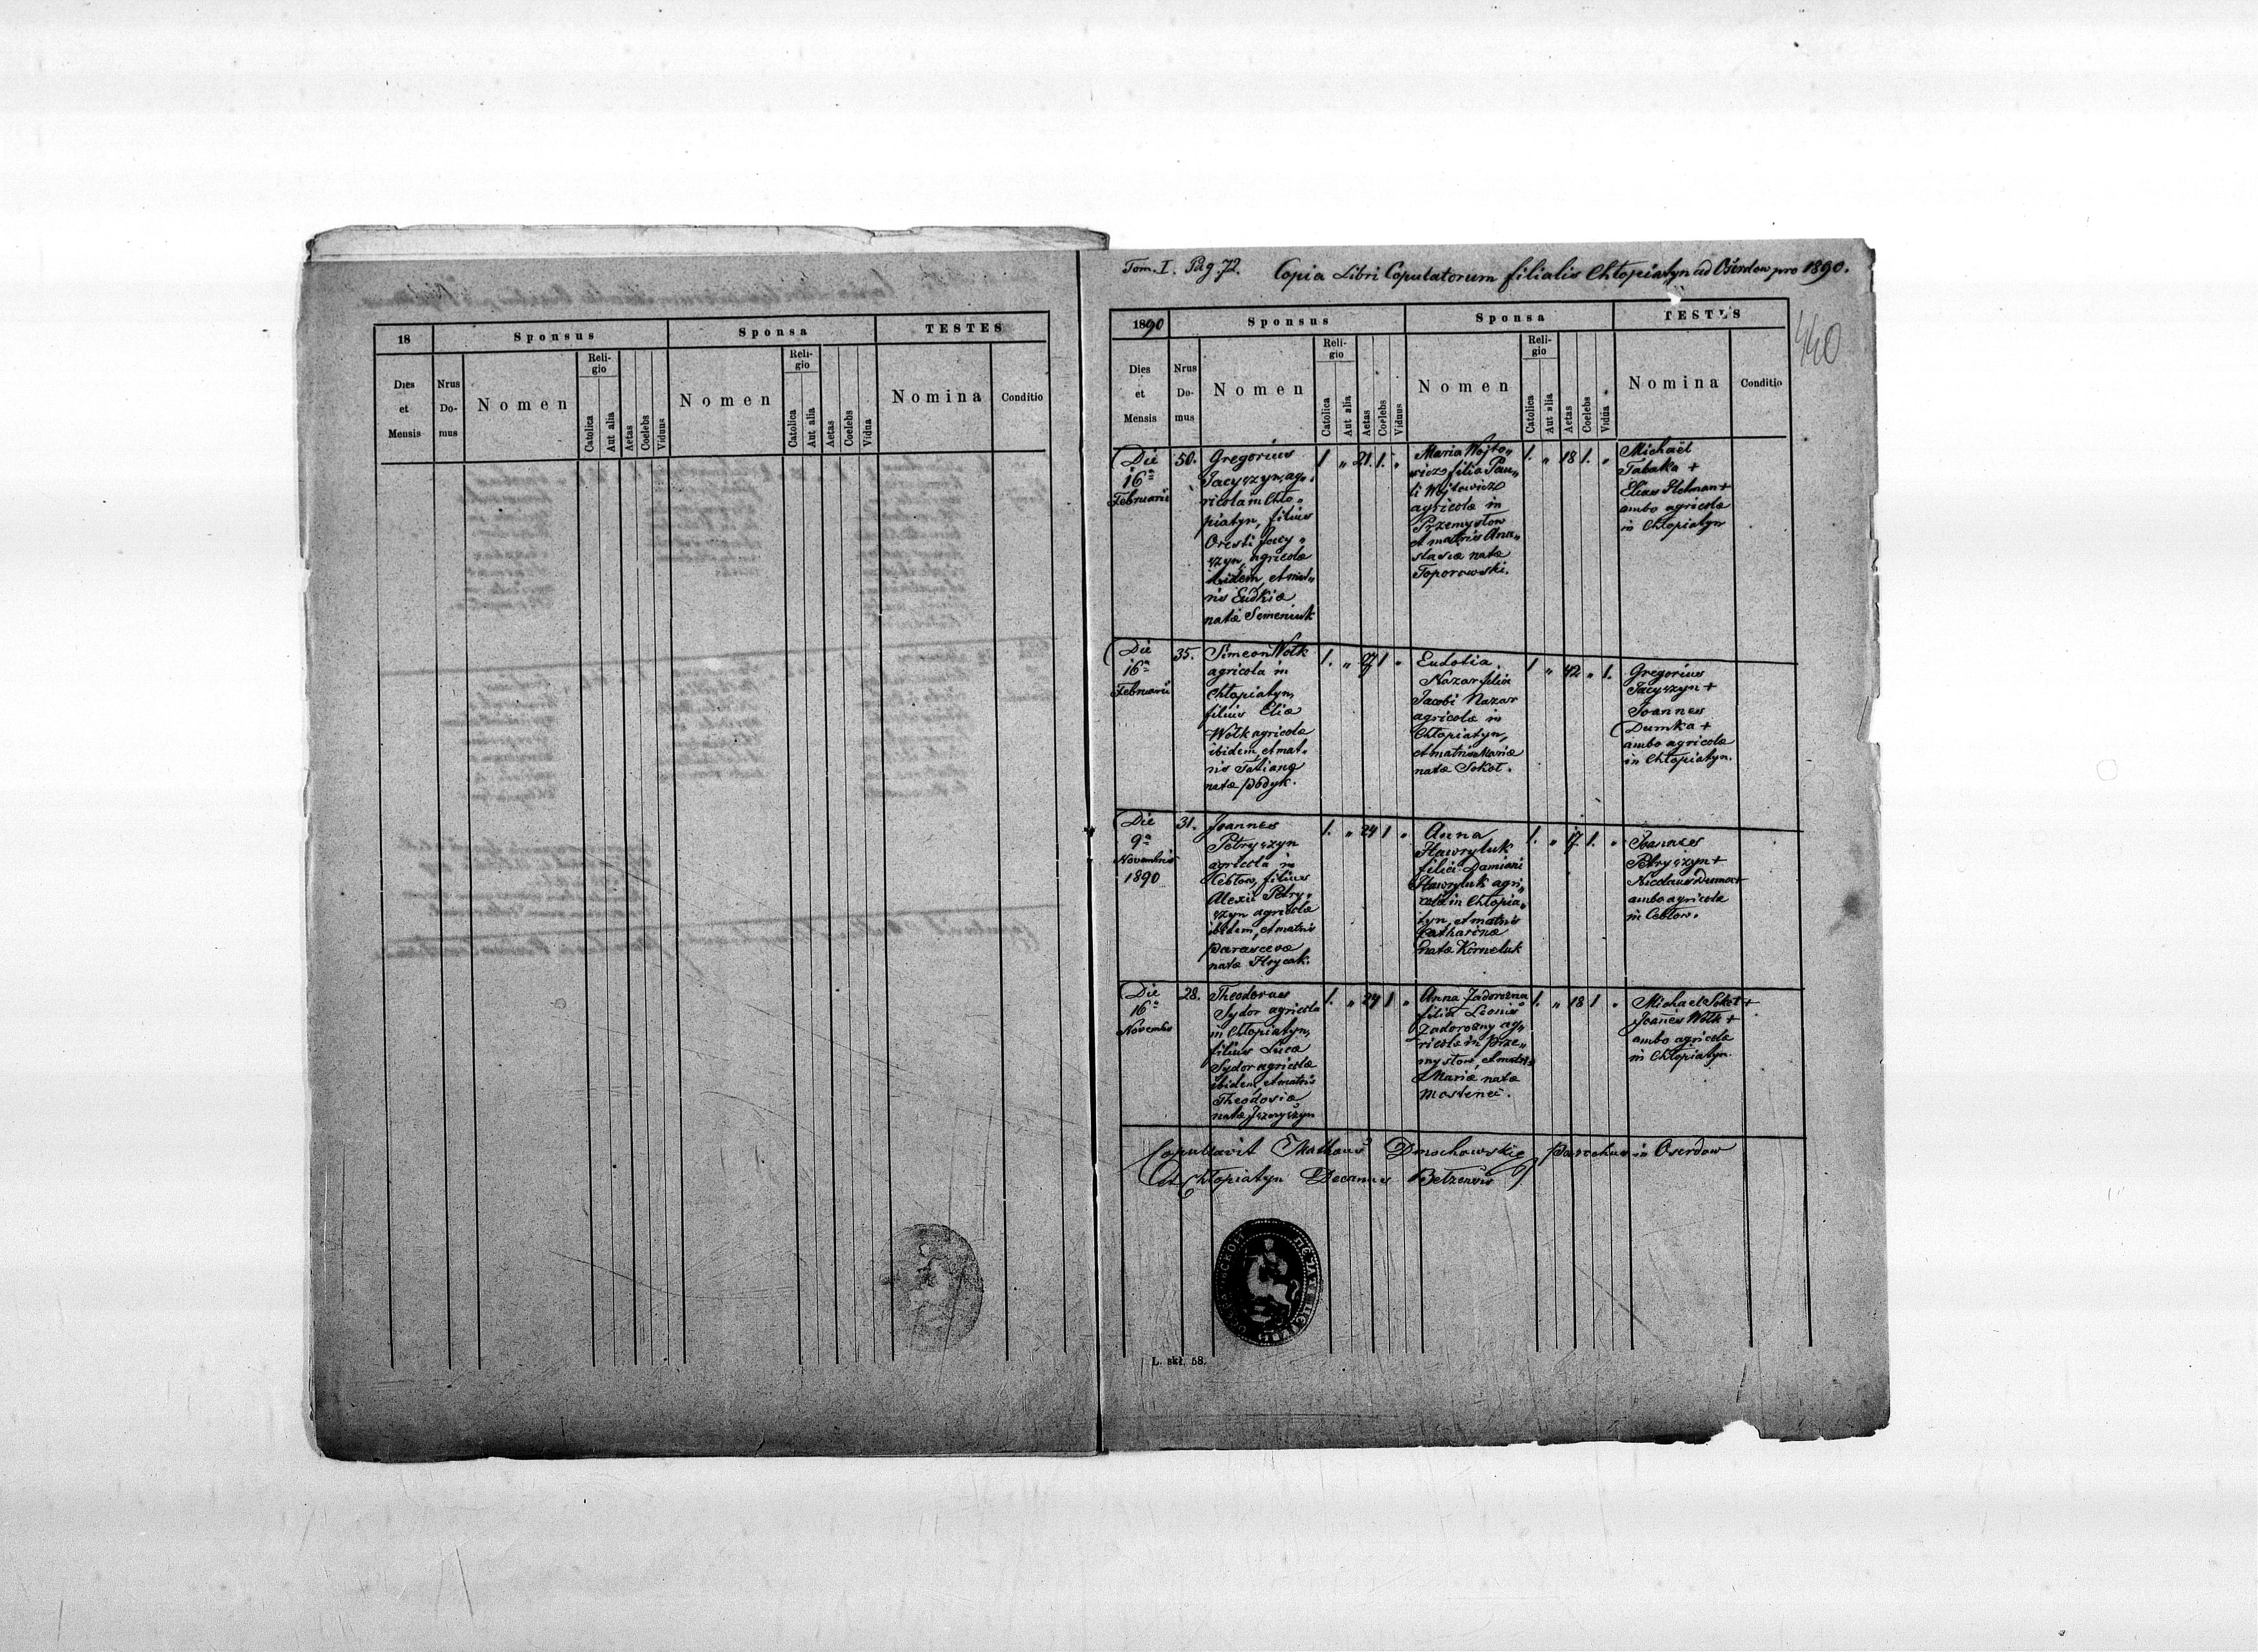 18
Sponsus
Sponsa
TESTES
Dies
et
Mensis
Nrus
Do-
mus
Nomen
Reli-
gio
Catolica
Aut alia
Aetas
Coelebs
Viduus
Nomen
Reli-
gio
Catolica
Aut alia
Aetas
Coelebs
Vidua
Nomina
Conditio
Tom. I. Pag. 72. Copia Libri Copulatorum filialis Chłopiatyn ad Oserdow pro 1890.
440
1890
Sponsus
Sponsa
TESTES
Dies
et
Mensis
Nrus
Do-
mus
Nomen
Reli-
gio
Catolica
Aut alia
Aetas
Coelebs
Viduus
Nomen
Reli-
gio
Catolica
Aut alia
Aetas
Coelebs
Vidua
Nomina
Conditio
Die
16a
Februarii
50.
Gregorius
Jacyszyn, ag„
ricola in Chło„
piatyn, filius
Oresti Jacy„
szyn, agricolæ
ibidem, et mat„
ris Eudkiæ
natæ Semeniuk
1 „ 21. 1. „
Maria Wojto„
wicz filia Pau„
li Wojtowicz
agricolæ in
Przemysłow
et matris Ana„
stasiæ natæ
Toporowski.
1. „ 18 1. „
Michaël
Tabaka +
Elias Helman +
ambo agricolæ
in Chłopiatyn
Die
16a
Februarii
35.
Simeon Wołk
agricola in
Chłopiatyn,
filius Eliæ
Wołk agricolæ
ibidem, et mat„
ris Tatianæ
natæ Podyk.
1. „ 1 „
Eudokia
Nazar filia
Jacobi Nazar
agricolæ in
Chłopiatyn,
et matris Mariæ
natæ Sokoł.
1 „ 42 „ 1.
Gregorius
Jacyszyn +
Joannes
Dumka +
ambo agricolæ
in Chłopiatyn.
Die
9a
Novembris
1890
31.
Joannes
Petryszyn
agricola in
Cebłow, filius
Alexii Petry„
szyn agricolæ
ibidem, et matris
Parascevæ
natæ Hrycak.
1. „ 24 1 „
Anna
Hawryluk
filia Damiani
Hawryluk agri„
colæ in Chłopia„
tyn, et matris
Catharinæ
natæ Korneluk
1. „ 17. 1. „
Joannes
Petryszyn +
Nicolaus Duma +
ambo agricolæ
in Cebłow.
Die
16a
Novembris
28.
Theodorus
Sydor agricola
in Chłopiatyn,
filius Lucæ
Sydor agricolæ
ibidem, et matris
Theodosiæ
natæ
1. „ 24 1 „
Anna Zadorozna
filia Leonis
Zadorozny ag„
ricolæ in Prze„
mysłow, et matris
Mariæ natæ
1. „ 18 1 „
Michael Sokoł +
Joannes Wołk +
ambo agricolæ
in Chłopiatyn.
Copulavit Mathæus Dmochowskie Parochus in Oserdow
et Chłopiatyn Decanus Bełzensis
L. skł. 58.